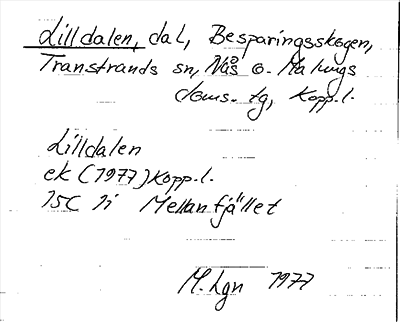 Lilldalen, dal, Besparingsskogen,
Transtrands sn, Nås o. Malungs
doms. tg, Kopp.l.
Lilldalen
ek (1977) Kopp.l.
15C 1i Mellanfjället
M. Lgn 1977